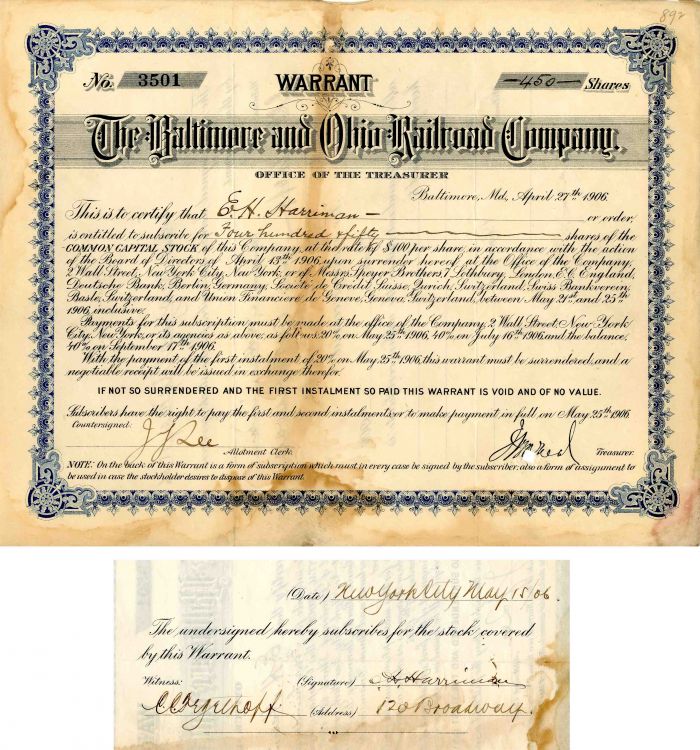 892
No. 3501 WARRANT —450— Shares
The Baltimore and Ohio Railroad Company.
OFFICE OF THE TREASURER
Baltimore, Md., April 27th 1906.
This is to certify that E. H. Harriman — or order,
is entitled to subscribe for Four hundred & fifty — shares of the
COMMON CAPITAL STOCK of this Company, at the rate of $100 per share, in accordance with the action
of the Board of Directors of April 13th 1906, upon surrender hereof, at the Office of the Company,
2 Wall Street, New York City, New York, or of Messrs Speyer Brothers, 7 Lothbury, London, E.C. England,
Deutsche Bank, Berlin, Germany, Societe de Credit Suisse, Zurich, Switzerland, Swiss Bankverein,
Basle, Switzerland, and Union Financiere de Geneve, Geneva, Switzerland, between May 21st and 25th
1906, inclusive.
Payments for this subscription must be made at the office of the Company, 2 Wall Street, New York
City, New York, or its agencies as above, as follows: 20% on May 25th 1906, 40% on July 16th 1906, and the balance,
40% on September 17th 1906.
With the payment of the first instalment of 20% on May 25th 1906, this warrant must be surrendered, and a
negotiable receipt will be issued in exchange therefor.
IF NOT SO SURRENDERED AND THE FIRST INSTALMENT SO PAID THIS WARRANT IS VOID AND OF NO VALUE.
Subscribers have the right to pay the first and second instalments or to make payment in full on May 25th 1906.
Countersigned:
J J Lee Allotment Clerk. Treasurer.
NOTE: On the back of this Warrant is a form of subscription which must in every case be signed by the subscriber, also a form of assignment to
be used in case the stockholder desires to dispose of this Warrant.
(Date) New York City May 15/06.
The undersigned hereby subscribes for the stock covered
by this Warrant.
Witness: (Signature) E H Harriman
C C Tegethoff (Address) 120 Broadway.